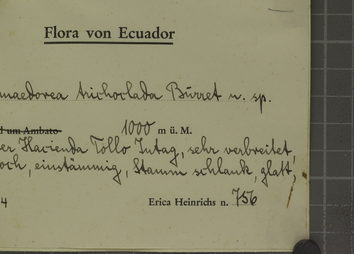 Flora von Ecuador
maedorea trichoclada Burret n. sp.
d um Ambato 1000 m ü. M.
er Hacienda Tollo Intag, sehr verbreitet,
och, einstämmig, Stamm schlank, glatt,
4 Erica Heinrichs n. 756